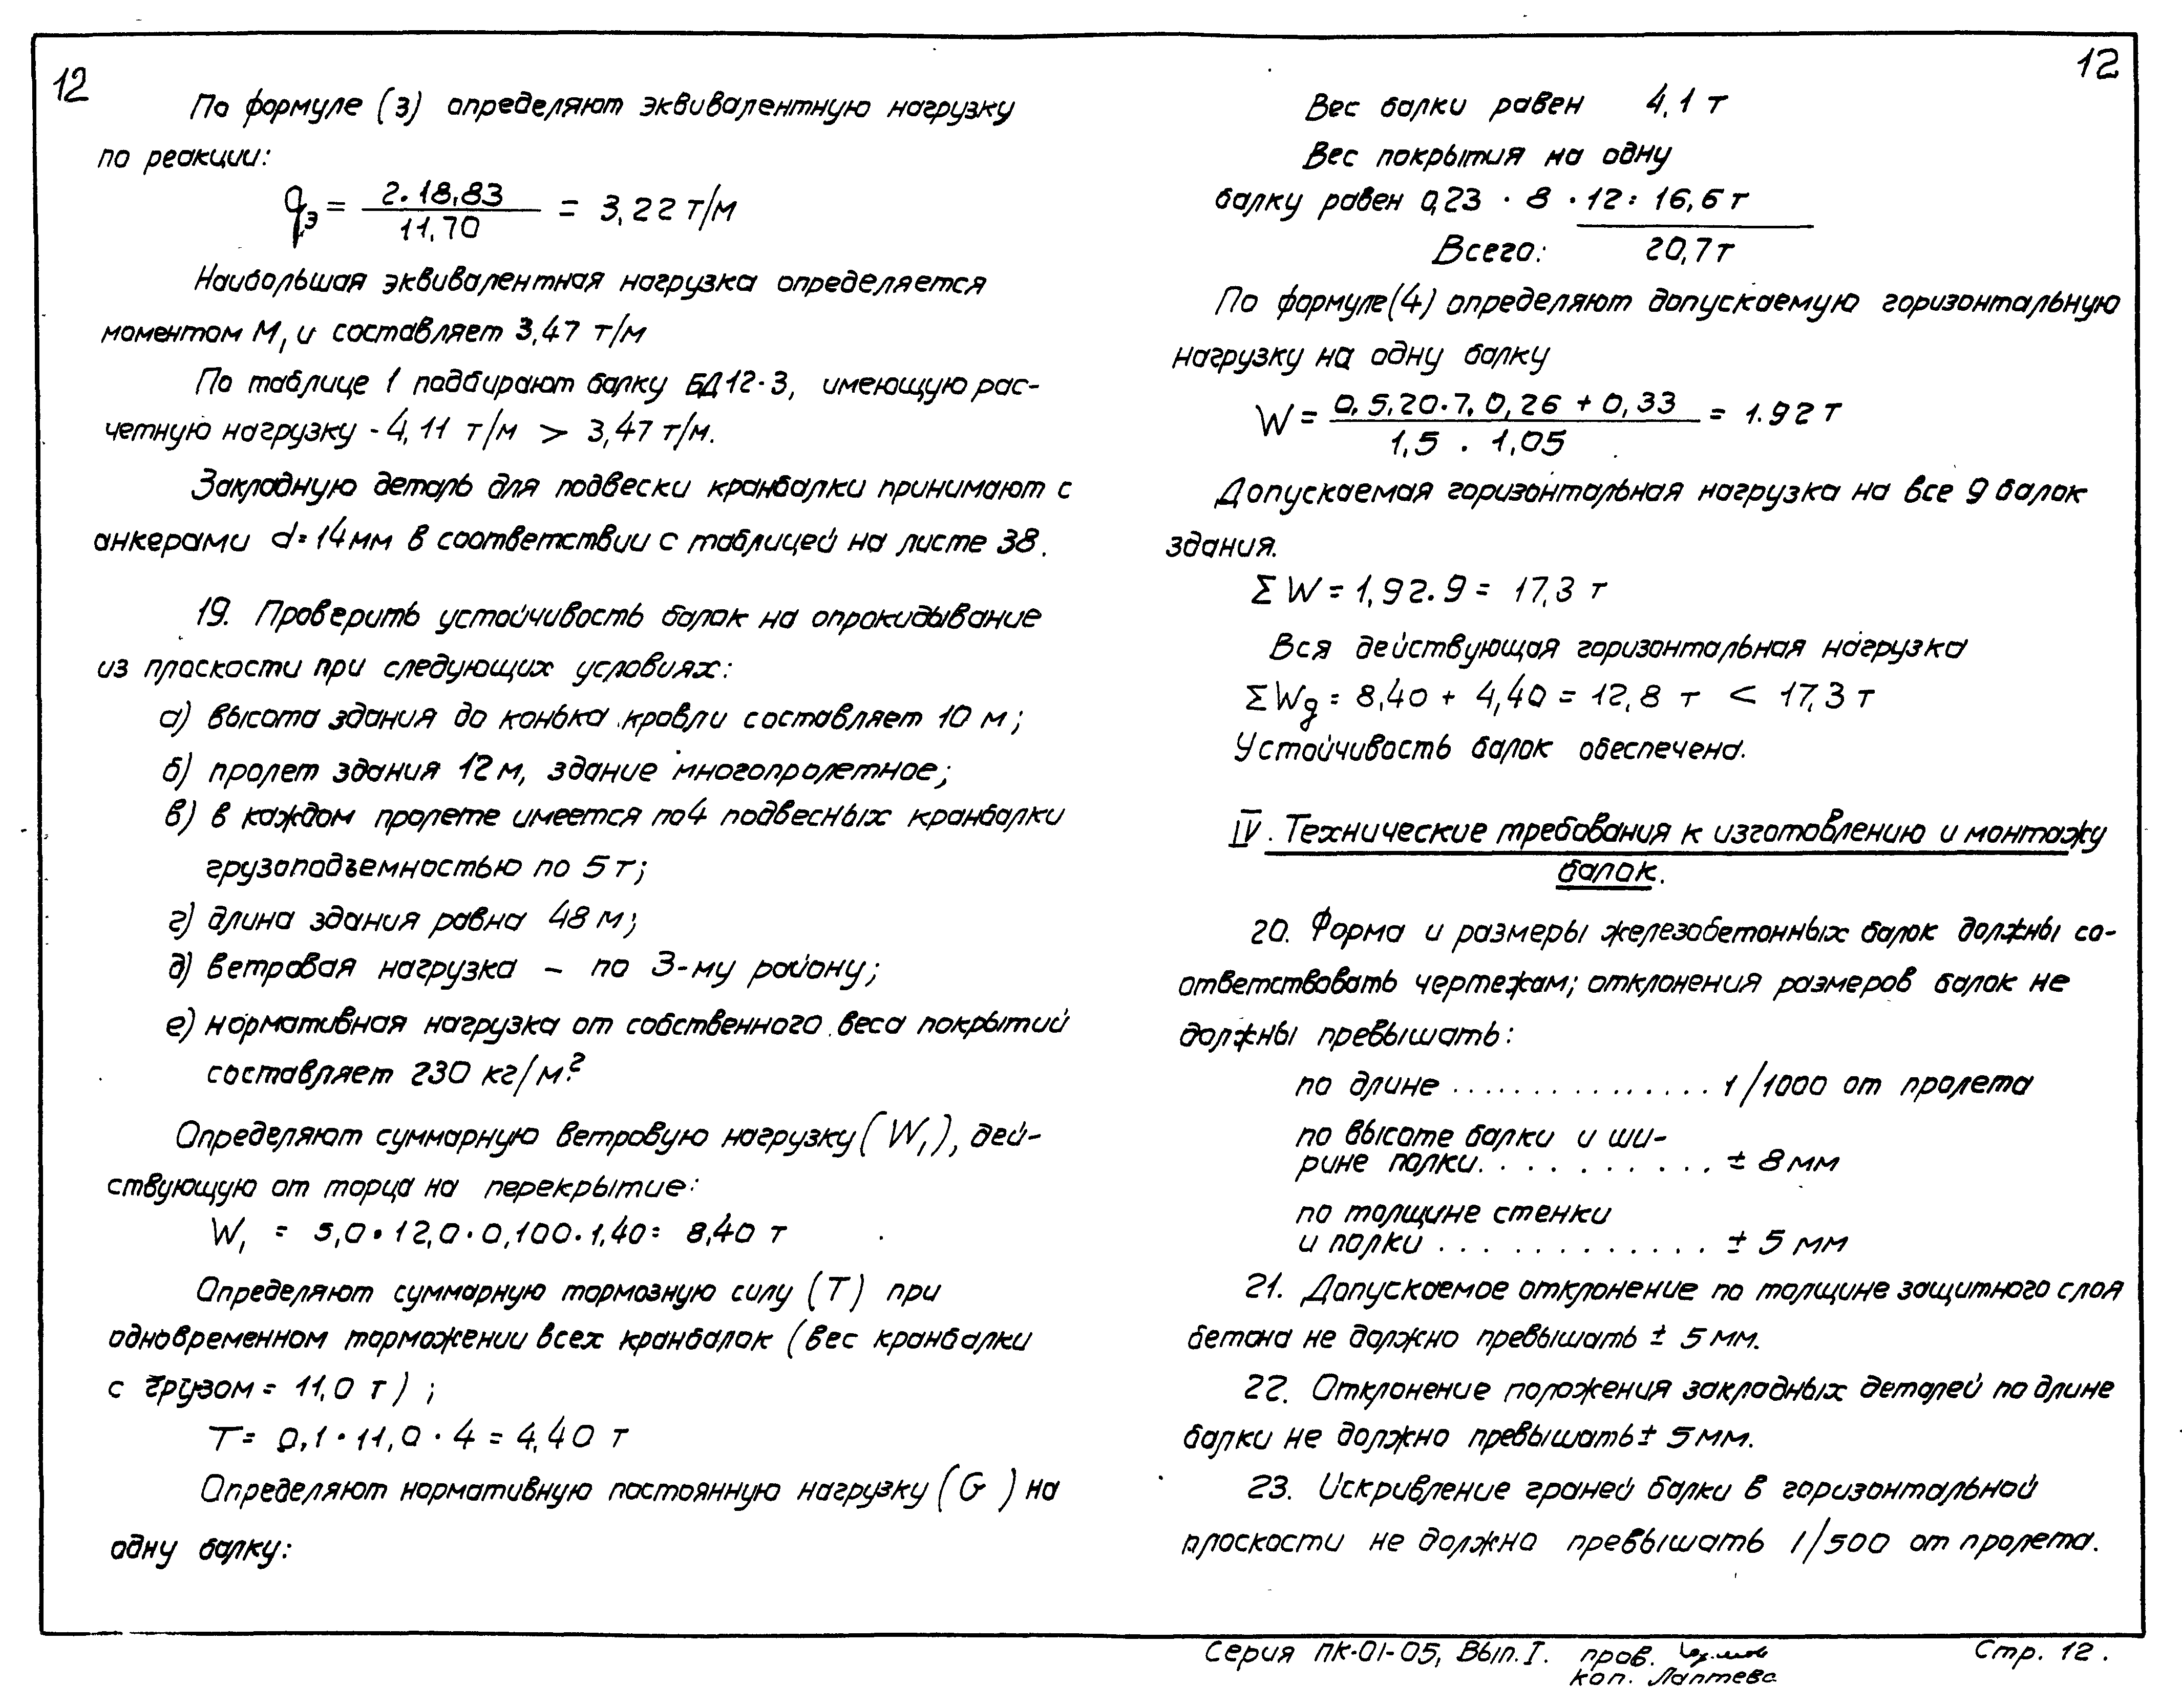 12
По формуле (3) определяют эквивалентную нагрузку
по реакции:
qэ = 2·18,83 / 11,70 = 3,22 т/м
Наибольшая эквивалентная нагрузка определяется
моментом М₁ и составляет 3,47 т/м
По таблице 1 подбирают балку БД12-3, имеющую рас-
четную нагрузку - 4,11 т/м > 3,47 т/м.
Закладную деталь для подвески кранбалки принимают с
анкерами d=14мм в соответствии с таблицей на листе 38.
19. Проверить устойчивость балок на опрокидывание
из плоскости при следующих условиях:
а) высота здания до конька кровли составляет 10 м;
б) пролет здания 12м, здание многопролетное;
в) в каждом пролете имеется по 4 подвесных кранбалки
грузоподъемностью по 5т;
г) длина здания равна 48м;
д) ветровая нагрузка – по 3-му району;
е) нормативная нагрузка от собственного веса покрытий
составляет 230 кг/м².
Определяют суммарную ветровую нагрузку (W₁), дей-
ствующую от торца на перекрытие:
W₁ = 5,0·12,0·0,100·1,40= 8,40 т
Определяют суммарную тормозную силу (Т) при
одновременном торможении всех кранбалок (вес кранбалки
с грузом = 11,0 т);
Т= 0,1·11,0·4 = 4,40 т
Определяют нормативную постоянную нагрузку (G) на
одну балку:
12
Вес балки равен 4,1 т
Вес покрытия на одну
балку равен 0,23 · 8 · 12 = 16,6 т
Всего: 20,7т
По формуле (4) определяют допускаемую горизонтальную
нагрузку на одну балку
W = 0,5,20.7, 0,26 + 0,33 / 1,5 . 1,05 = 1.92 т
Допускаемая горизонтальная нагрузка на все 9 балок
здания.
ΣW = 1,92.9 = 17,3 т
Вся действующая горизонтальная нагрузка
ΣWg = 8,40 + 4,40 = 12,8 т < 17,3 т
Устойчивость балок обеспечена.
IV. Технические требования к изготовлению и монтажу
балок.
20. Форма и размеры железобетонных балок должны со-
ответствовать чертежам; отклонения размеров балок не
должны превышать:
по длине ............... 1/1000 от пролета
по высоте балки и ши-
рине полки........... ± 8мм
по толщине стенки
и полки ............. ± 5 мм
21. Допускаемое отклонение по толщине защитного слоя
бетона не должно превышать ± 5мм.
22. Отклонение положения закладных деталей по длине
балки не должно превышать ± 5мм.
23. Искривление граней балки в горизонтальной
плоскости не должно превышать 1/500 от пролета.
Серия ПК-01-05, Вып. I. пров. Стр. 12.
коп. Лаптева